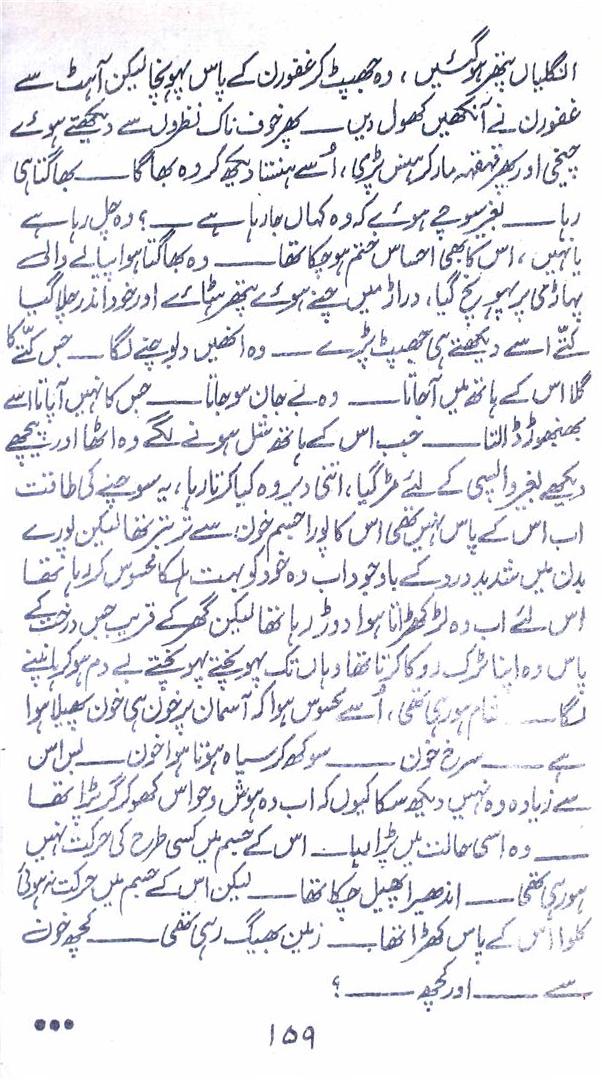 انگلیاں پتھر ہو گئیں ، وہ جھپٹ کر غفورن کے پاس پہونچا لیکن آہٹ سے
غفورن نے آنکھیں کھول دیں ــ پھر خوف ناک نظروں سے دیکھتے ہوئے
چیخی اور پھر قہقہہ مار کر ہنس پڑی ، اُسے ہنستا دیکھ کر وہ بھاگا ــــ بھاگتا ہی
رہا ــــ بغیر سوچے ہوئے کہ وہ کہاں جا رہا ہے ــــ ؟ وہ چل رہا ہے
یا نہیں ، اس کا بھی احساس ختم ہو چکا تھا ــــ وہ بھاگتا ہوا پیالے والی
پہاڑی پر پہونچ گیا ، دراڑ میں چنے ہوئے پتھر ہٹائے اور خود اندر چلا گیا
کتّے اسے دیکھتے ہی جھپٹ پڑے ــــ وہ انھیں دبوچنے لگا ــ جس کتّے کا
گلا اس کے ہاتھ میں آجاتا ــــ وہ بے جان ہو جاتا ــــ جس کا نہیں آپاتا اسے
بھنبھوڑ ڈالتا ــــ جب اس کے ہاتھ شل ہونے لگے وہ اٹھا اور پیچھے
دیکھے بغیر واپسی کے لئے مڑ گیا ، اتنی دیر وہ کیا کرتا رہا ، یہ سوچنے کی طاقت
اب اس کے پاس نہیں تھی اس کا پورا جسم خون سے تر بتر تھا لیکن پورے
بدن میں شدید درد کے باوجود اب وہ خود کو بہت ہلکا محسوس کر رہا تھا
اس لئے اب وہ لڑکھڑاتا ہوا دوڑ رہا تھا لیکن گھر کے قریب جس درخت کے
پاس وہ اپنا ٹرک روکا کرتا تھا وہاں تک پہونچتے پہونچتے بے دم ہو کر ہانپنے
لگا ــــ شام ہو رہی تھی ، اُسے محسوس ہوا کہ آسمان پر خون ہی خون پھیلا ہوا
ہے ــــ سرخ خون ــــ سوکھ کر سیاہ ہوتا ہوا خون ــــ بس اس
سے زیادہ وہ نہیں دیکھ سکا کیوں کہ اب وہ ہوش و حواس کھو کر گر پڑا تھا
ــــ وہ اسی حالت میں پڑا رہا ــ اس کے جسم میں کسی طرح کی حرکت نہیں
ہو رہی تھی ــــ اندھیرا پھیل چکا تھا ــــ لیکن اس کے جسم میں حرکت نہ ہوئی
کلوا اُس کے پاس کھڑا تھا ــــ زمین بھیگ رہی تھی ــــ کچھ خون
سے ــــ اور کچھ ــــ ؟
●●●
۱۵۹